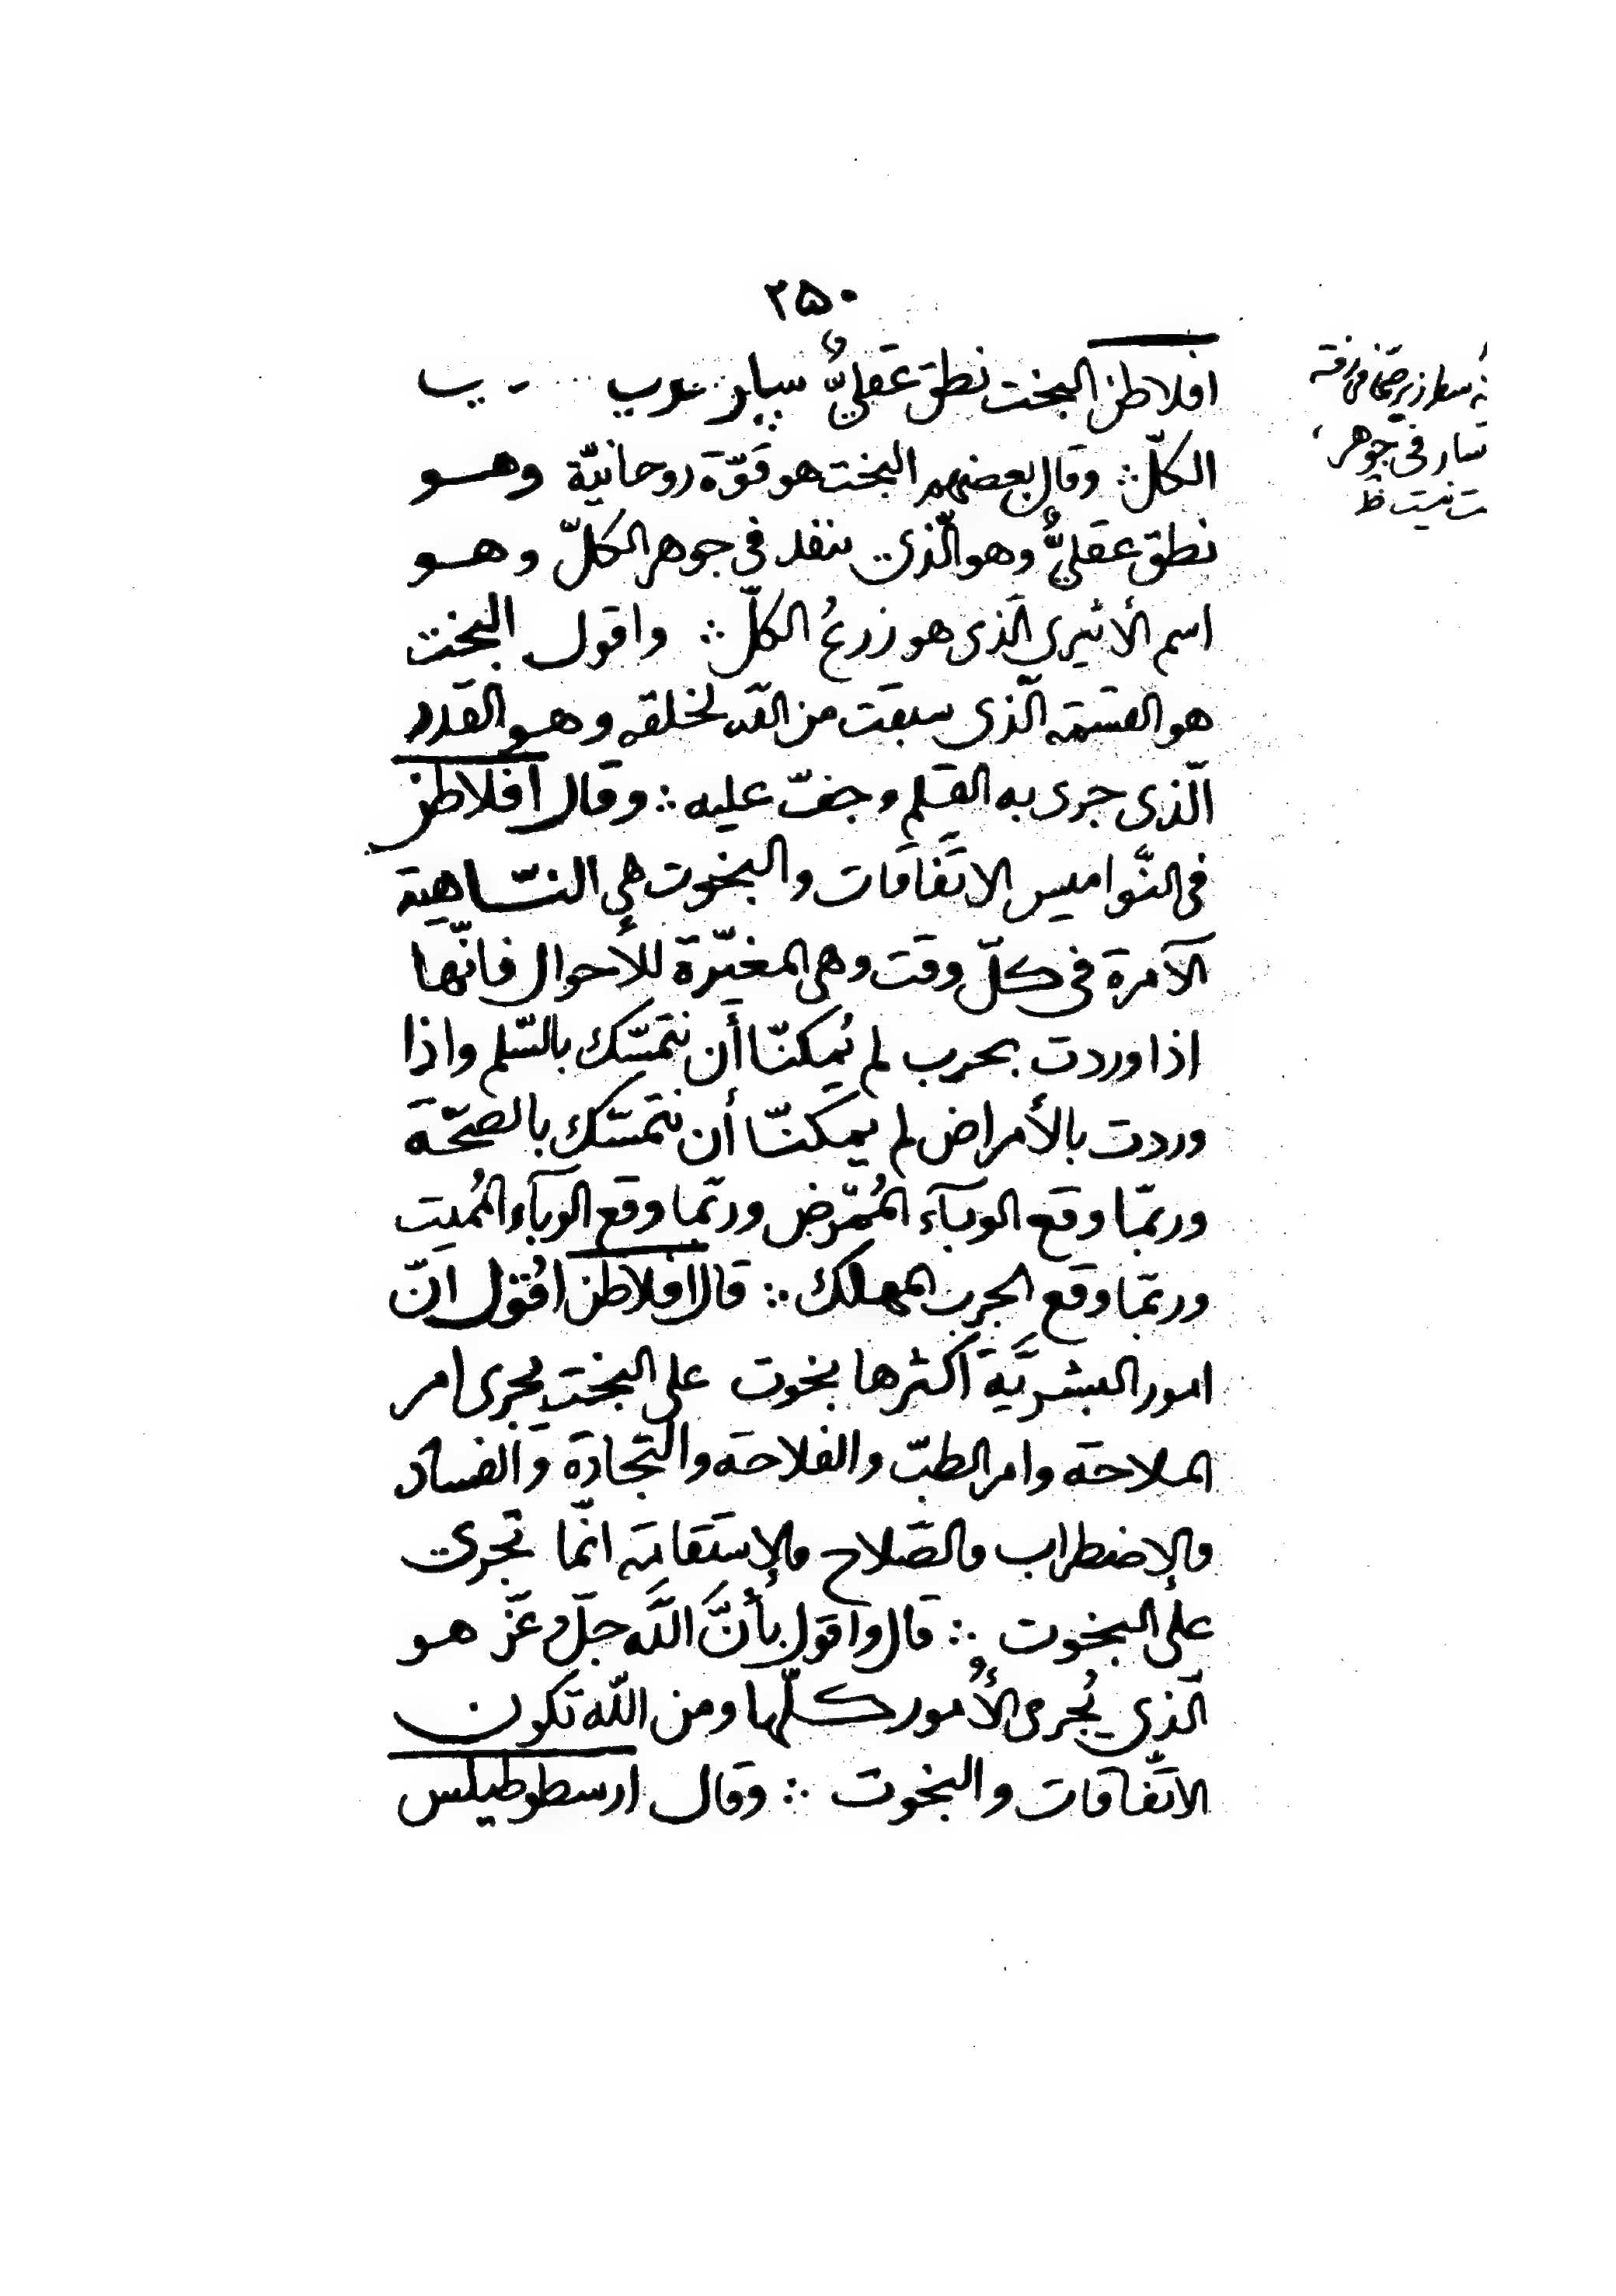 ۲۵۰
افلاطن البخت نطق عقليٌّ
الكلّ ∴ وقال بعضهم البخت هو قوّة روحانيّة وهو
نطق عقليٌّ وهو الّذي ينفد في جوهر الكلّ وهو
اسم الأثيري الّذي هو زرعُ الكلّ ∴ واقول البخت
هو القسمة الّذي سبقت من اللّه لخلقه وهو القدر
الّذي جرى به القلم وجفّ عليه ∴ وقال افلاطن
في النّواميس الاتّفاقات والبخوت هي النّاهية
الآمرة في كلّ وقت وهي المغيّرة للأحوال فانّها
اذا وردت بحرب لم يُمكنّا أن نتمسّك بالسّلم واذا
وردت بالأمراض لم يمكنّا أن نتمسّك بالصّحّة
وربّما وقع الوبآء المُمرّض وربّما وقع الوبآء المُميت
وربّما وقع الجرب المهلك ∴ قال افلاطن اقُول انّ
امور البشريّة اكثرها بخوت على البخت يجرى امر
الملاحة وامر الطبّ والفلاحة والتّجارة والفساد
والاضطراب والصّلاح والاستقامة انّما تجري
على البخوت ∴ قال واقول بأنَّ اللّه جلّ وعزّ هو
الّذي يُجرى الأُمور كلّها ومن اللّه تكون
الاتّفاقات والبخوت ∴ وقال ارسطوطيلس
في جوهر